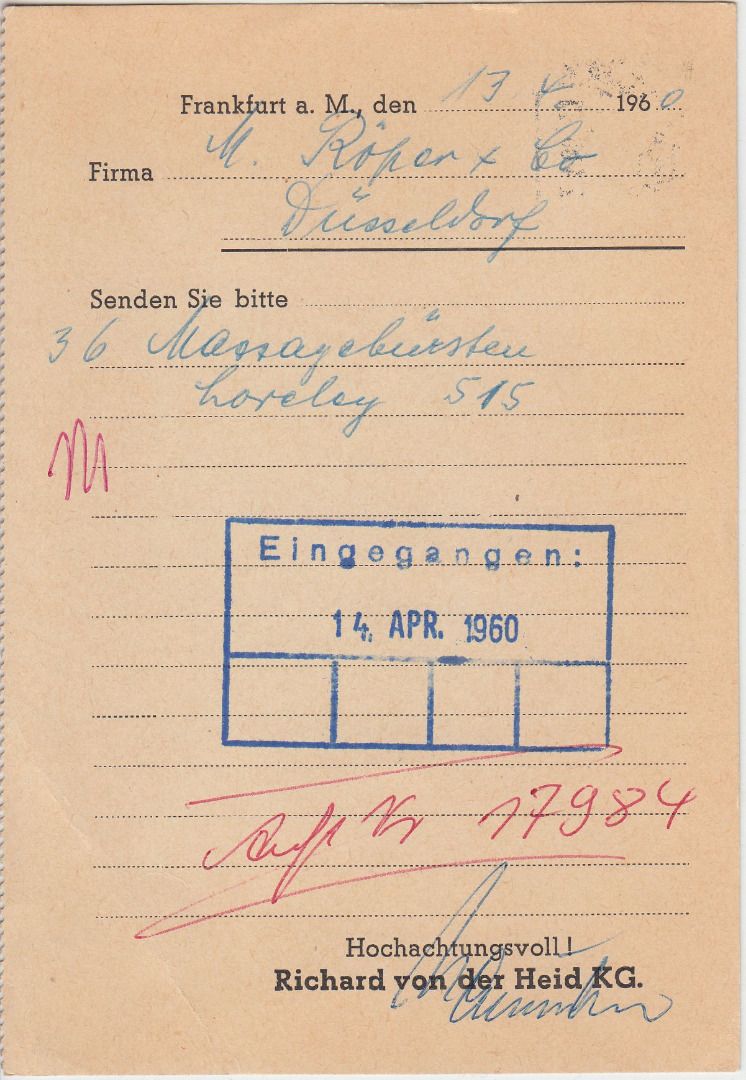 Frankfurt a. M., den 13 4 1960
Firma M. Röper + Co
Düsseldorf
Senden Sie bitte
36 Massagebürsten
Loreley 515
M
Eingegangen:
14. APR. 1960
Auft Nr 17984
Hochachtungsvoll!
Richard von der Heid KG.